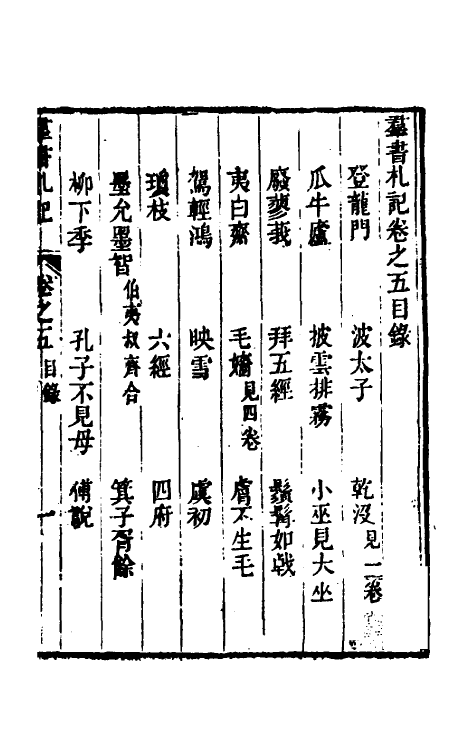 羣書札記卷之五目錄
登龍門 波太子 乾沒見一二卷
瓜牛廬 披雲排霧 小巫見大巫
廢蓼莪 拜五經 鬚髯如戟
夷白齋 毛嬙見四卷 膚不生毛
駕輕鴻 映雪 虞初
瓊枝 六經 四府
墨允墨智伯夷叔齊合 箕子胥餘
柳下季 孔子不見母 傅說
羣書札記 卷之五目錄 一